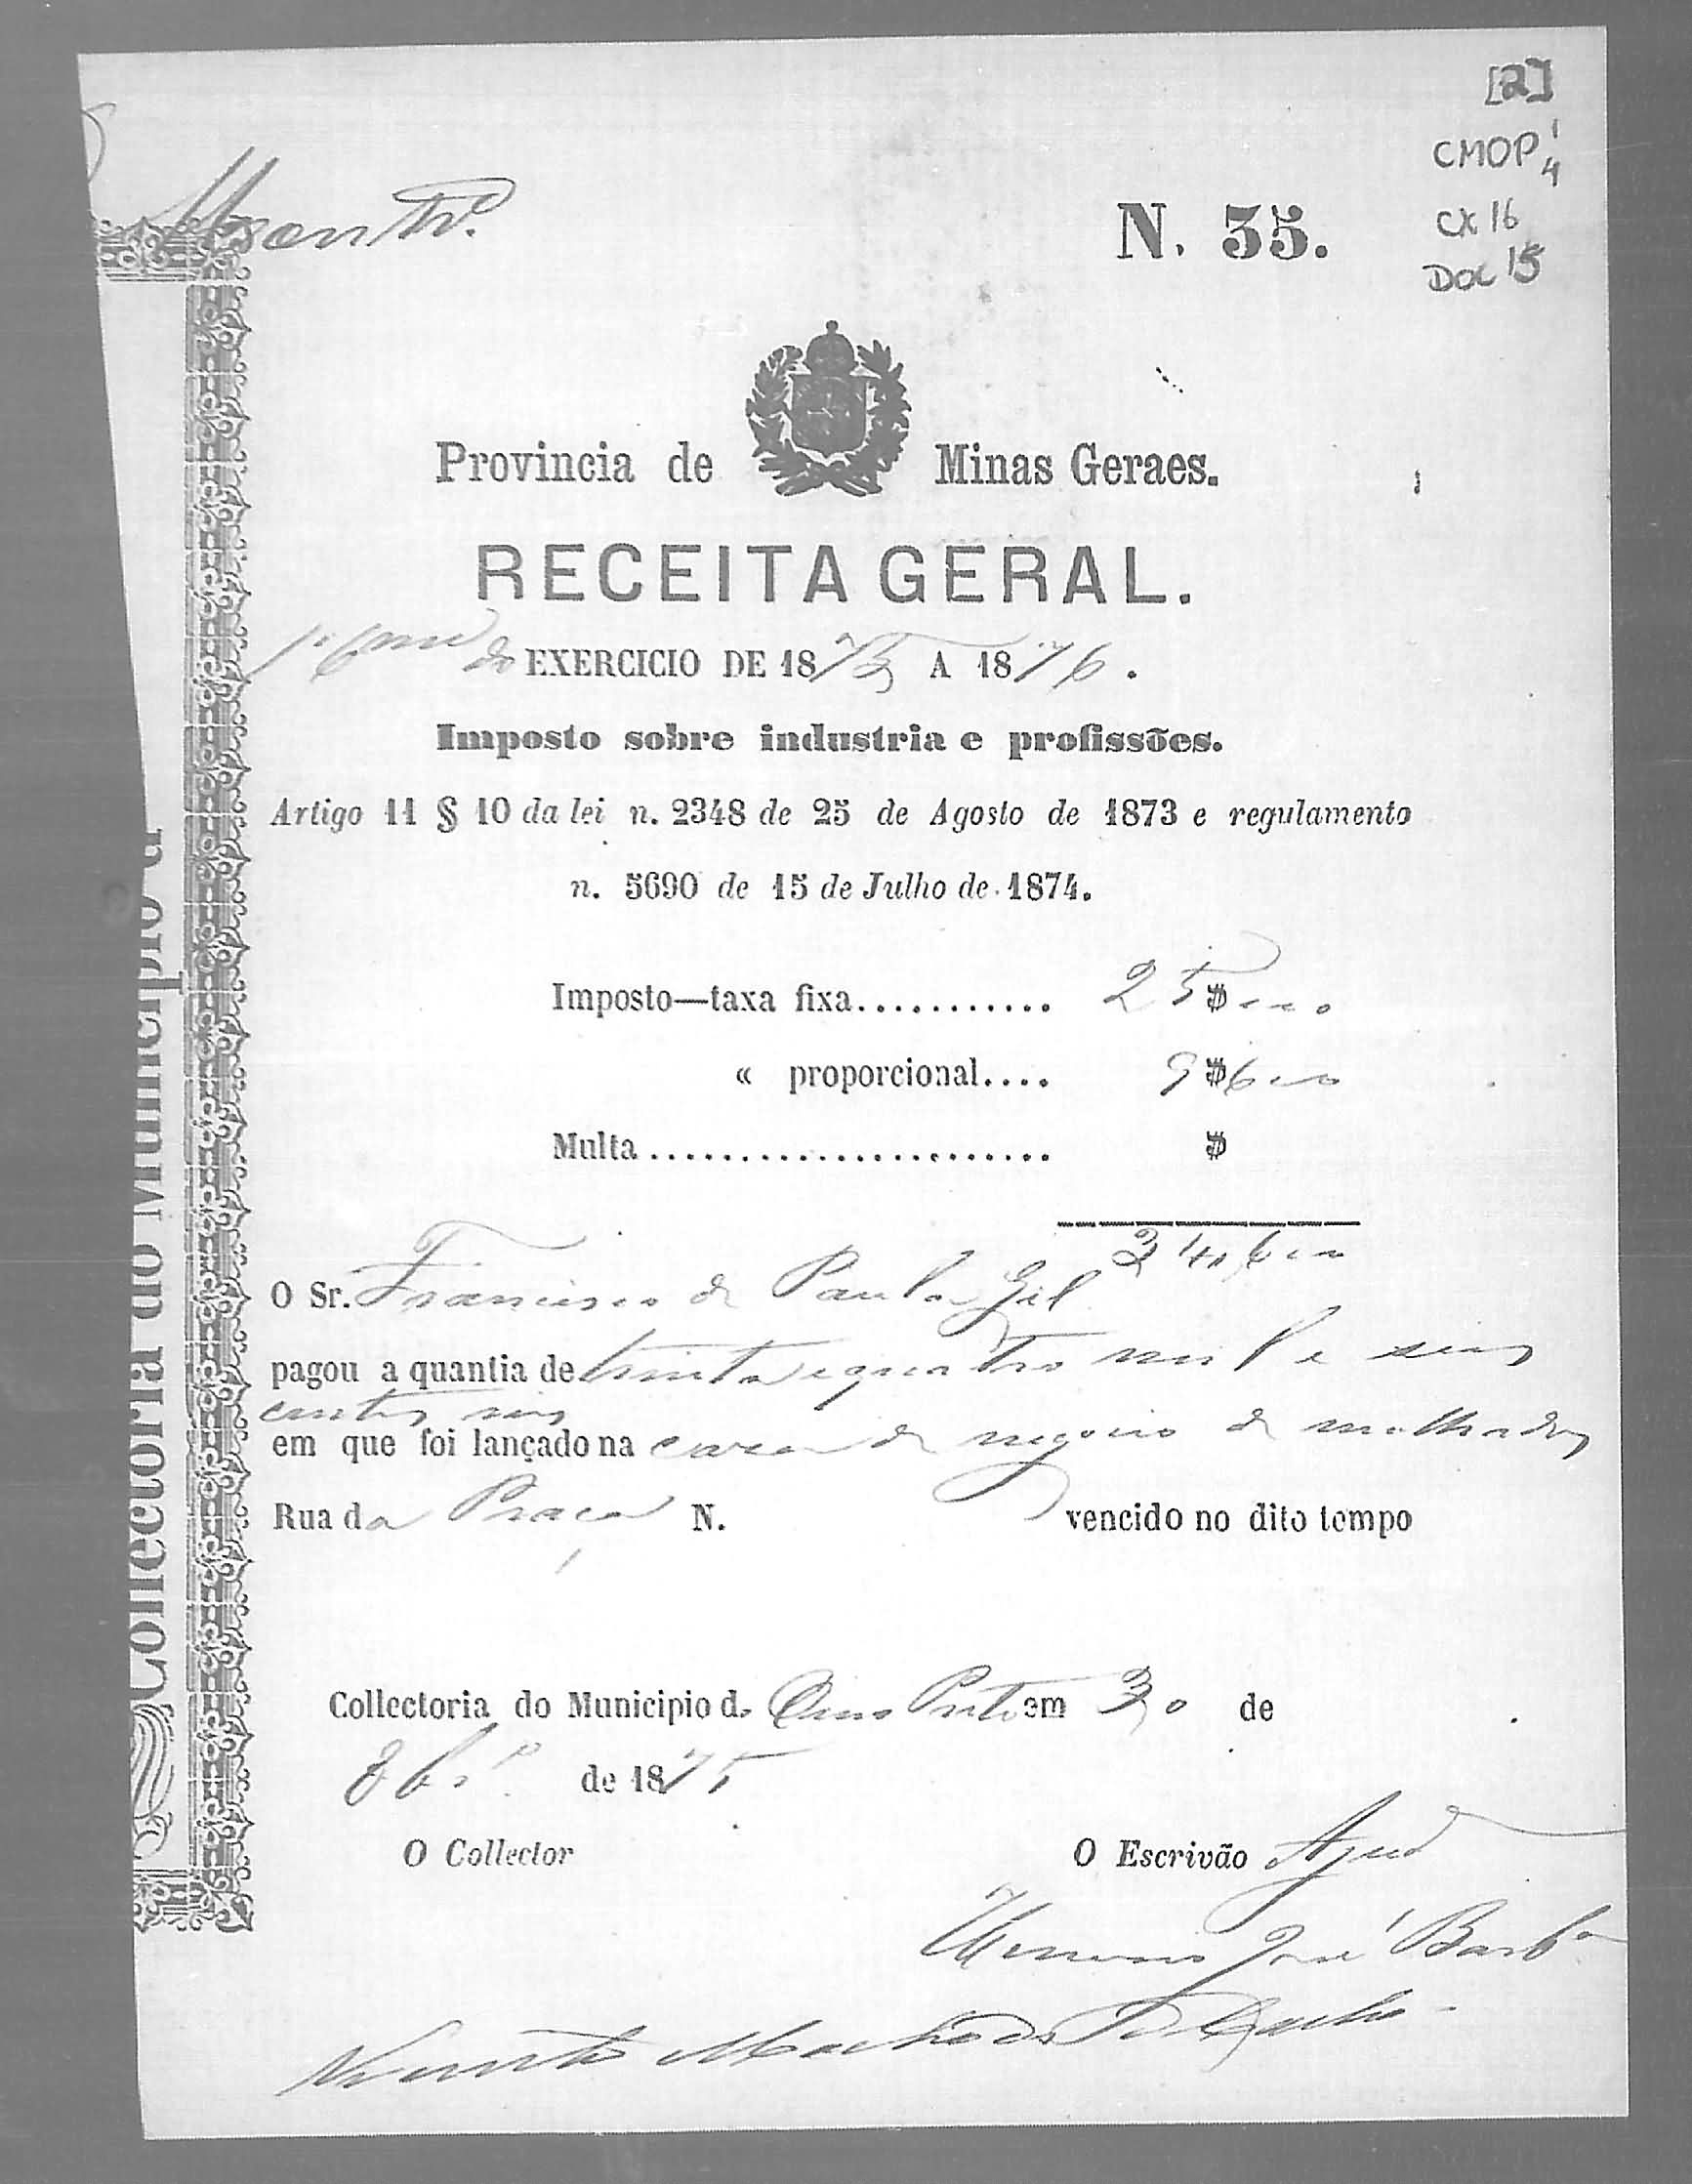 [2]
CMOP 1/4
CX 16
DOC 15
N. 35.
Provincia de Minas Geraes.
RECEITA GERAL.
do EXERCICIO DE 1875 A 1876.
Imposto sobre industria e profissões.
Artigo 11 § 10 da lei n. 2348 de 25 de Agosto de 1873 e regulamento
n. 5690 de 15 de Julho de 1874.
Imposto—taxa fixa........... 25$000
« proporcional.... 9$600
Multa....................... $
34,600
O Sr. Francisco de Paula Gil
pagou a quantia de trinta e quatro mil e seis
centos reis
em que foi lançado na casa de negocio de molhados
Rua da Praça N. vencido no dito tempo
Collectoria do Municipio d. Ouro Preto em 30 de
8brº de 1875
O Collector O Escrivão Ajud
José Barbª
Vicente Machado
Collectoria do Municipio d